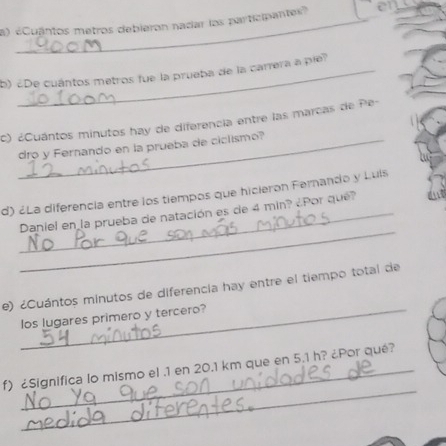 a) ¿Cuántos metros debieron nadar los participantes?
1900m
b) ¿De cuántos metros fue la prueba de la carrera a pie?
10 100m
c) ¿Cuántos minutos hay de diferencia entre las marcas de Pe-
dro y Fernando en la prueba de ciclismo?
12 minutos
d) ¿La diferencia entre los tiempos que hicieron Fernando y Luis
Daniel en la prueba de natación es de 4 min? ¿Por qué?
No Por que son más minutos
e) ¿Cuántos minutos de diferencia hay entre el tiempo total de
los lugares primero y tercero?
54 minutos
f) ¿Significa lo mismo el .1 en 20.1 km que en 5.1 h? ¿Por qué?
No Ya que son unidades de
medida diferentes.